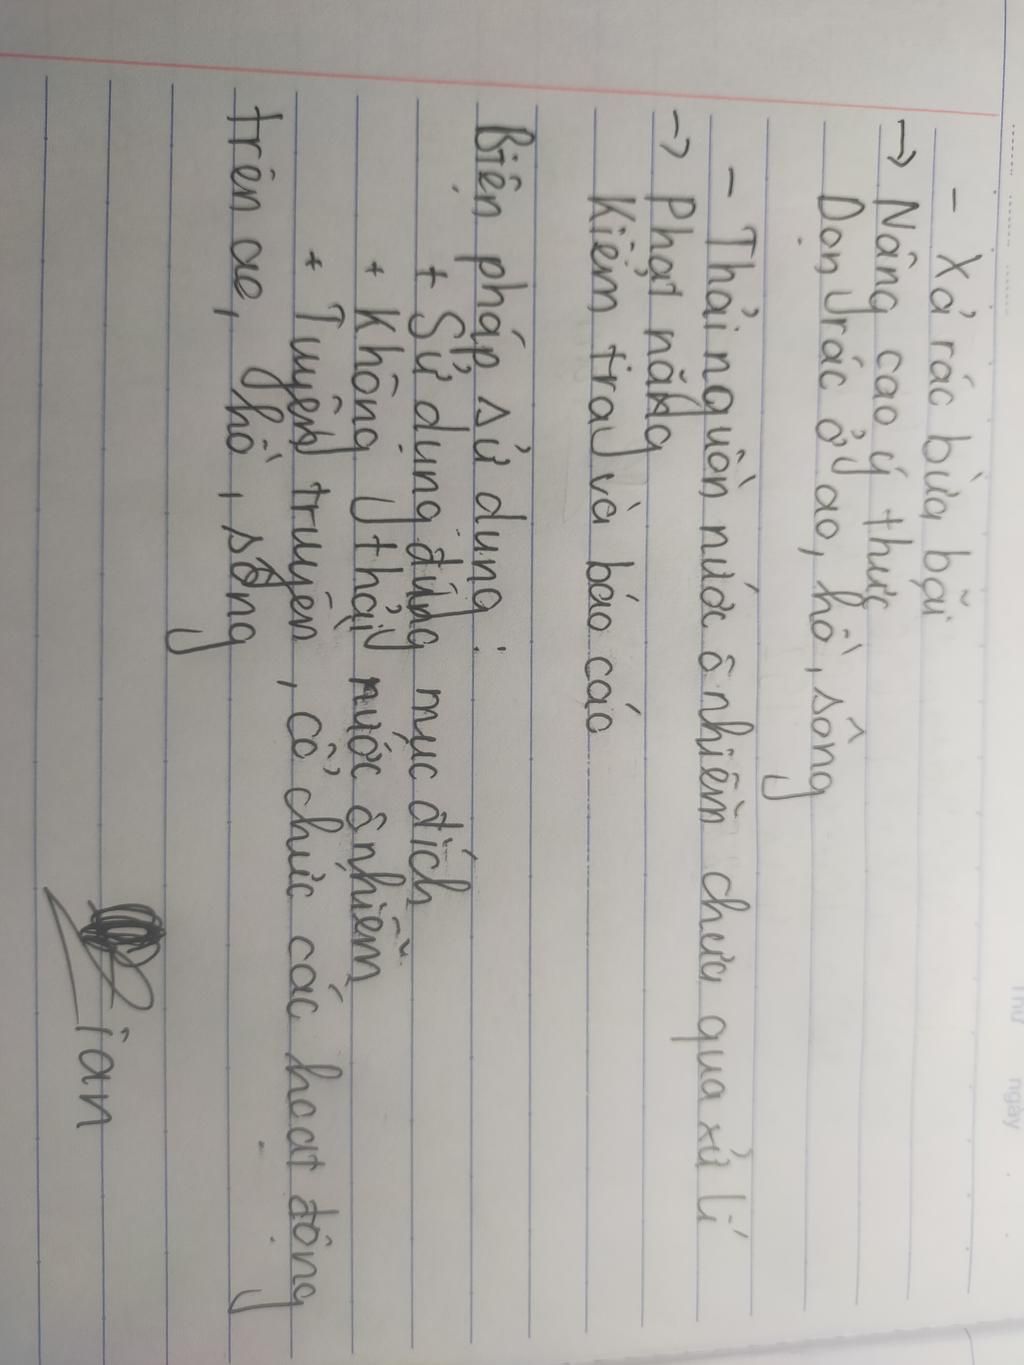 - Xả rác bừa bãi
→ Nâng cao ý thức
Dọn rác ở ao, hồ, sông
- Thải nguồn nước ô nhiễm chưa qua xử lí
→ Phạt nặng
Kiểm tra và báo cáo
Biện pháp sử dụng :
+ Sử dụng đúng mục đích
+ Không thải nước ô nhiễm
+ Tuyên truyền, cổ chức các hoạt động
trên ao, hồ, sông
Lian
Thứ ngày